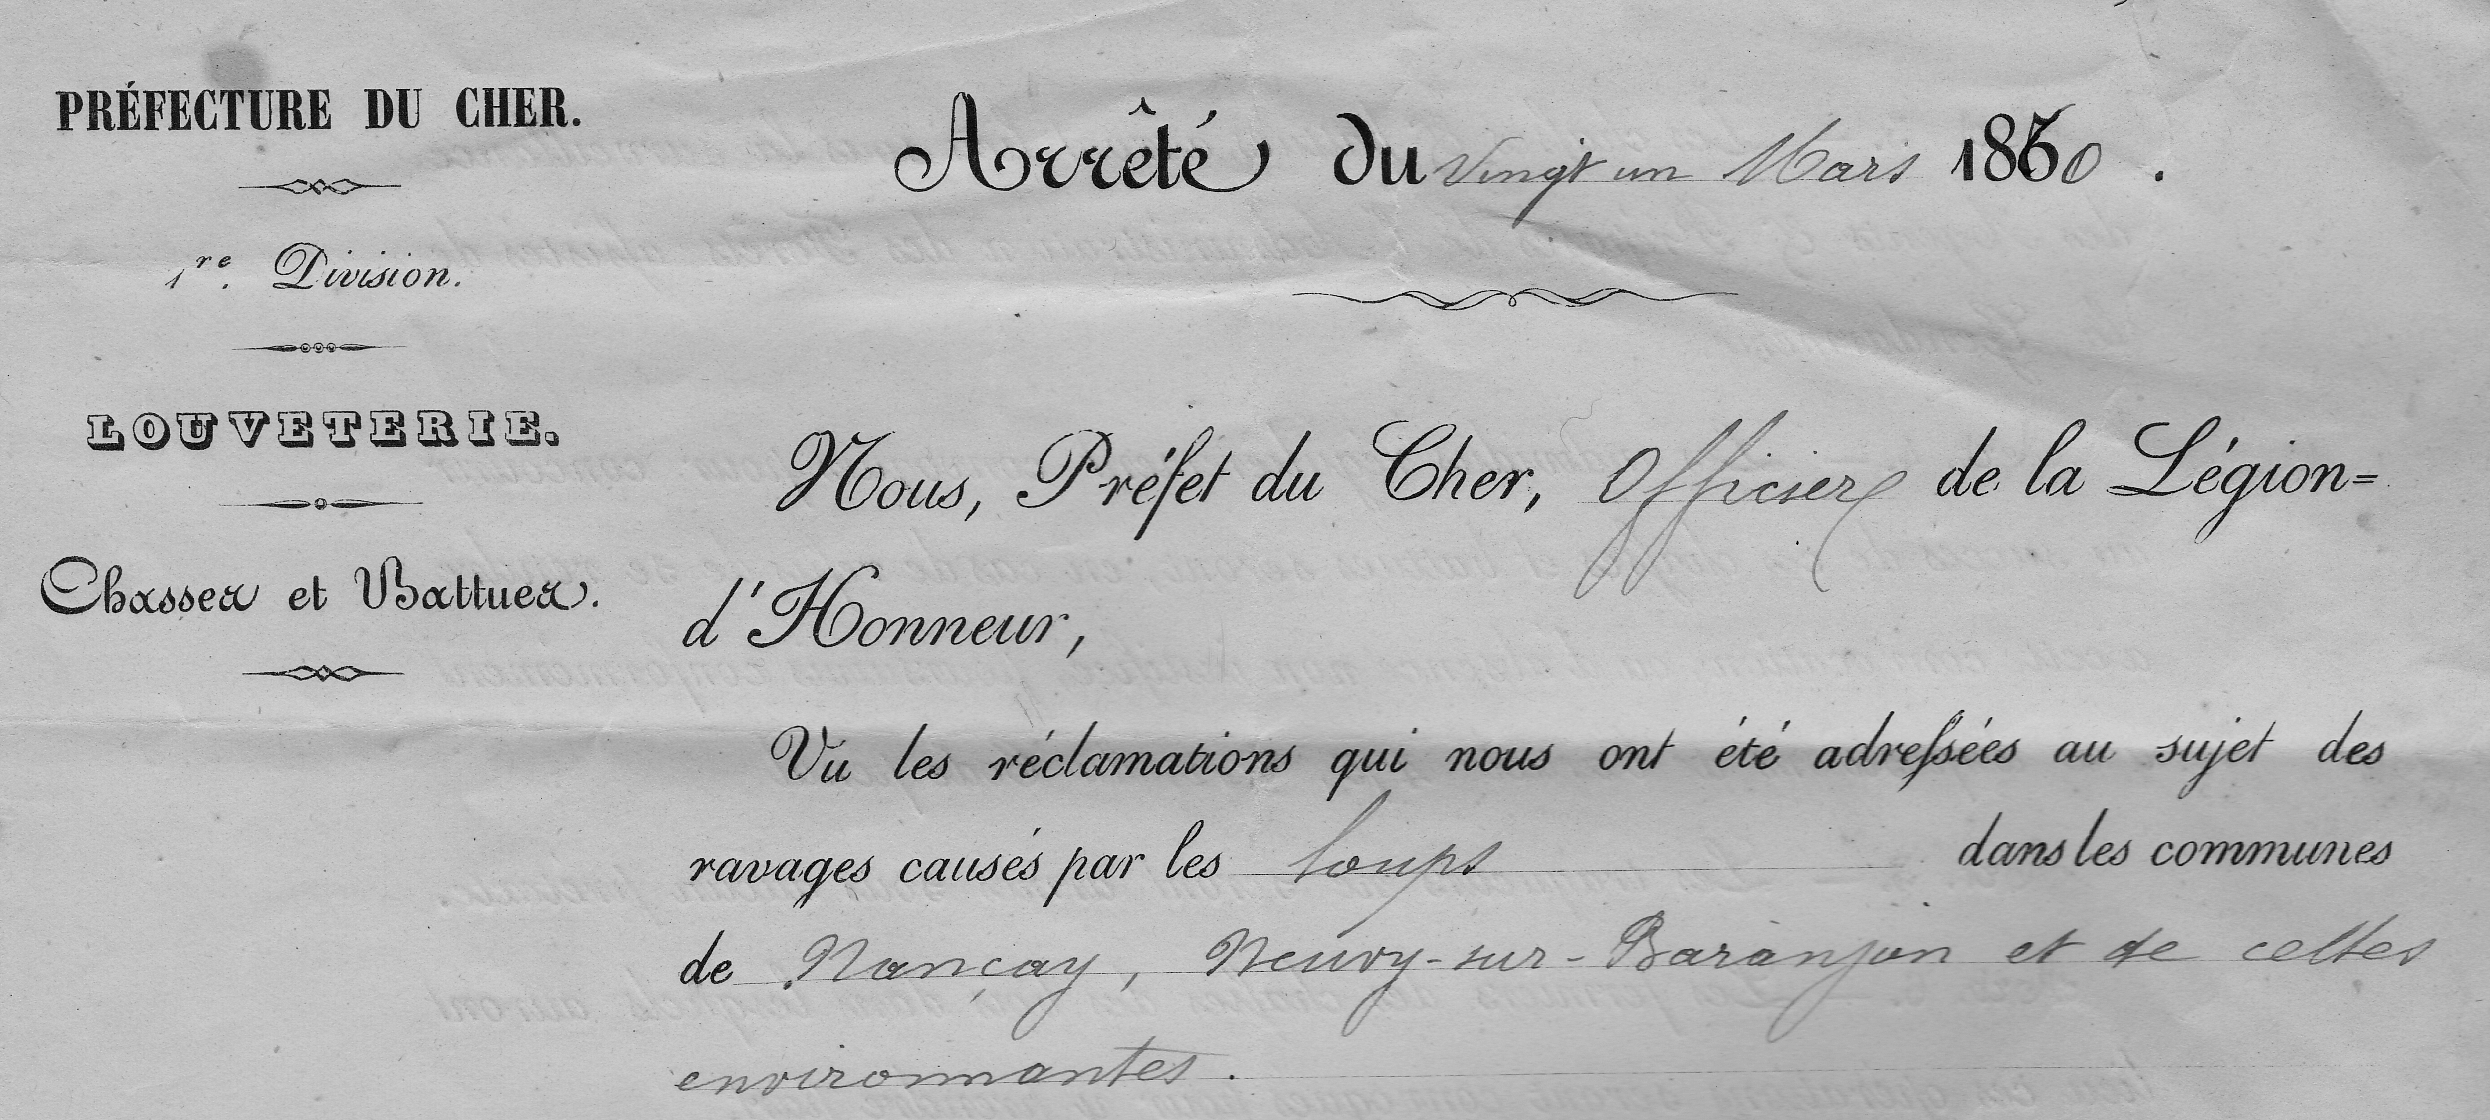 PRÉFECTURE DU CHER.
1re. Division.
LOUVETERIE.
Chasses et Battues.
Arrêté du Vingt un Mars 1860.
Nous, Préfet du Cher, Officier de la Légion=
d'Honneur,
Vu les réclamations qui nous ont été adreſsées au sujet des
ravages causés par les loups dans les communes
de Nançay, Neuvy-sur-Baranjon et de celles
environnantes.